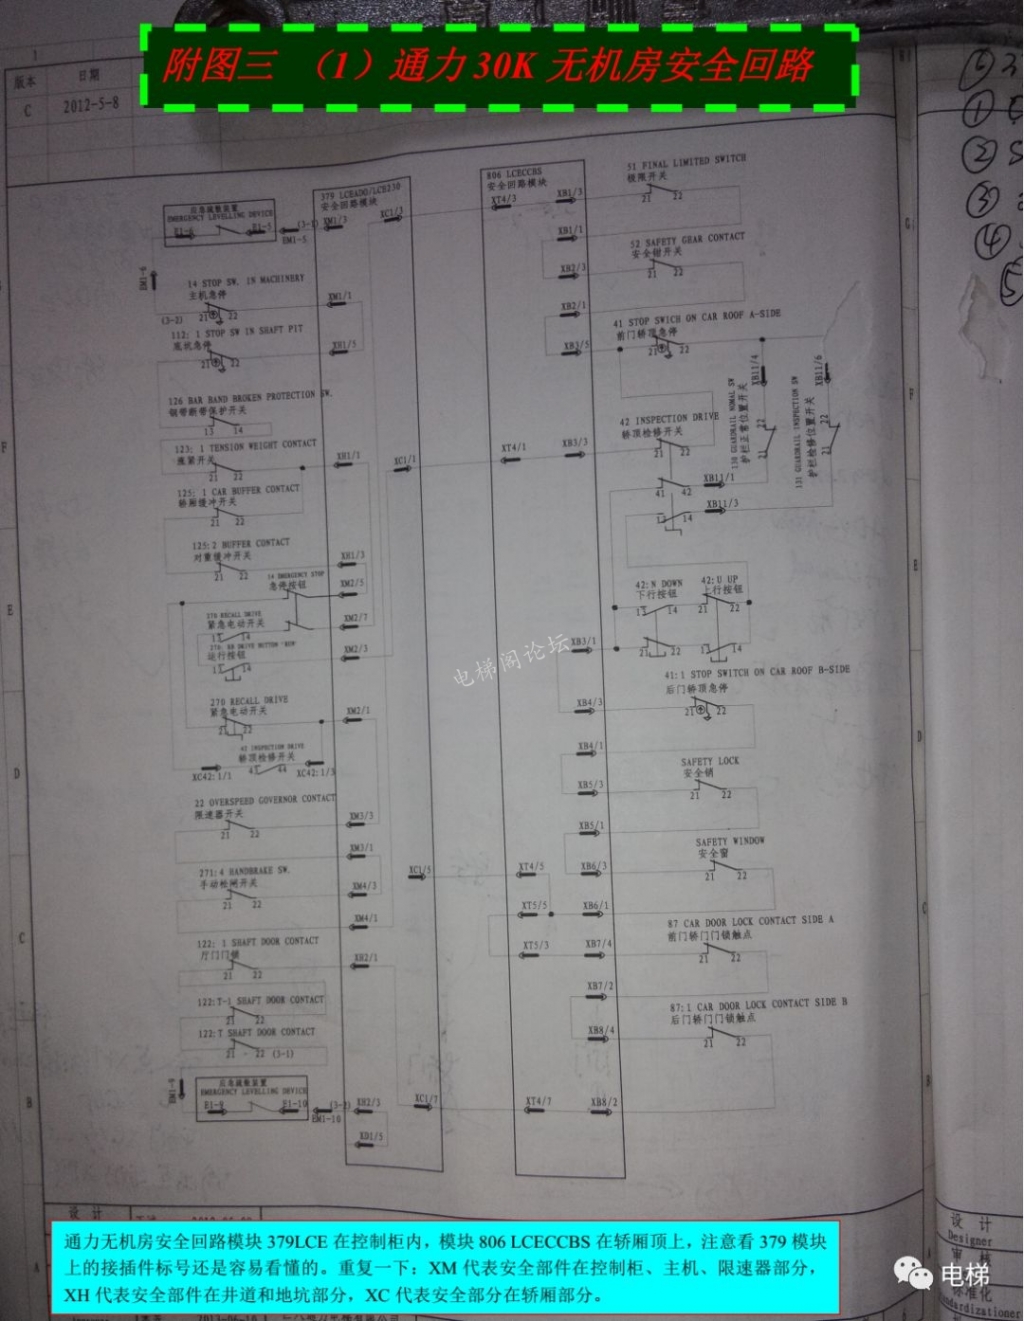 附图三 （1）通力 30K 无机房安全回路
版本
日期
C
2012-5-8
379 LCEADO/LCE230
安全回路模块
806 LCECCBS
安全回路模块
应急疏散装置
EMERGENCY LEVELLING DEVICE
E1-6
E1-5
(3-1)
EM1-5
XM1/3
XC1/3
XT4/3
XB1/3
51 FINAL LIMITED SWITCH
极限开关
21 22
XB1/1
52 SAFETY GEAR CONTACT
安全钳开关
21 22
XB2/3
XB2/1
EM1-6
14 STOP SW. IN MACHINERY
主机急停
(3-2)
21 22
XM1/1
112: 1 STOP SW IN SHAFT PIT
底坑急停
21 22
XH1/5
41 STOP SWICH ON CAR ROOF A-SIDE
前门轿顶急停
21 22
XB3/5
XB11/4
XB11/6
126 BAR BAND BROKEN PROTECTION SW.
钢带断带保护开关
13 14
42 INSPECTION DRIVE
轿顶检修开关
21 22
130 GUARDRAIL NOMAL SW
护栏正常位置开关
21 22
131 GUARDRAIL INSPECTION SW
护栏检修位置开关
21 22
123: 1 TENSION WEIGHT CONTACT
涨紧开关
21 22
XH1/1
XC1/1
XT4/1
XB3/3
41 42
XB11/1
13 14
XB11/3
125: 1 CAR BUFFER CONTACT
轿厢缓冲开关
21 22
125: 2 BUFFER CONTACT
对重缓冲开关
21 22
XH1/3
14 EMERGENCY STOP
急停按钮
XM2/5
270 RECALL DRIVE
紧急电动开关
13 14
XM2/7
运行按钮
13 14
XM2/3
42: N DOWN
下行按钮
13 14
42: U UP
上行按钮
21 22
XB3/1
21 22
13 14
270 RECALL DRIVE
紧急电动开关
21 22
XM2/1
42 INSPECTION DRIVE
轿顶检修开关
43 44
XC42: 1/1
XC42: 1/3
41: 1 STOP SWITCH ON CAR ROOF B-SIDE
后门轿顶急停
21 22
XB4/3
XB4/1
SAFETY LOCK
安全销
21 22
XB5/3
XB5/1
22 OVERSPEED GOVERNOR CONTACT
限速器开关
21 22
XM3/3
XM3/1
SAFETY WINDOW
安全窗
21 22
271: 4 HANDBRAKE SW.
手动松闸开关
21 22
XM4/3
XC1/5
XT4/5
XB6/3
XM4/1
XT5/5
XB6/1
87 CAR DOOR LOCK CONTACT SIDE A
前门轿门门锁触点
21 22
122: 1 SHAFT DOOR CONTACT
厅门门锁
21 22
XH2/1
XT5/3
XB7/4
XB7/2
122:T-1 SHAFT DOOR CONTACT
21 22
87:1 CAR DOOR LOCK CONTACT SIDE B
后门轿门门锁触点
21 22
XB8/4
122:T SHAFT DOOR CONTACT
21 - 22 (3-1)
EM1-9
应急疏散装置
EMERGENCY LEVELLING DEVICE
E1-9
E1-10
(3-2)
EM1-10
XH2/3
XC1/7
XT4/7
XB8/2
XD1/5
电梯阁论坛
设 计
设 计
Designer
审 核
标准化
通力无机房安全回路模块 379LCE 在控制柜内，模块 806 LCECCBS 在轿厢顶上，注意看 379 模块
上的接插件标号还是容易看懂的。重复一下：XM 代表安全部件在控制柜、主机、限速器部分，
XH 代表安全部件在井道和地坑部分，XC 代表安全部分在轿厢部分。
电梯